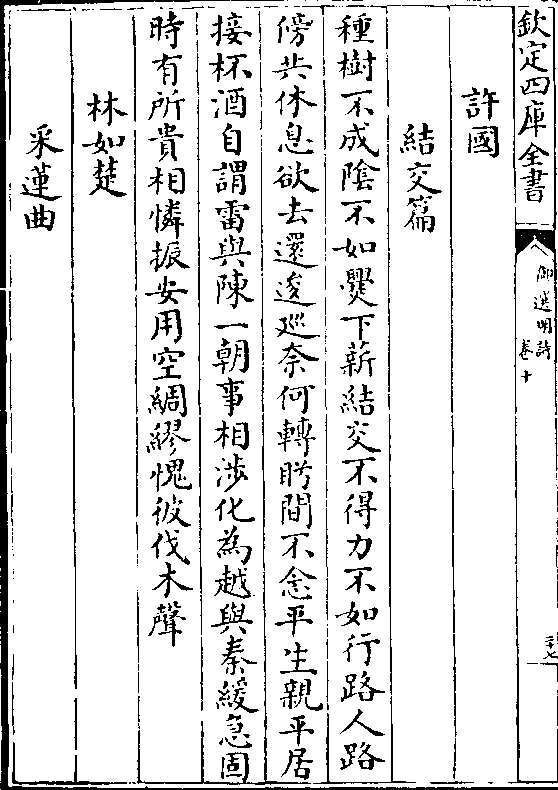 欽定四庫全書
御選明詩
卷十
三十七
許國
結交篇
種樹不成陰不如爨下薪結交不得力不如行路人路
傍共休息欲去還逡廵奈何轉盻間不念平生親平居
接杯酒自謂雷與陳一朝事相涉化為越與秦緩急固
時有所貴相憐振安用空綢繆愧彼伐木聲
林如楚
采蓮曲